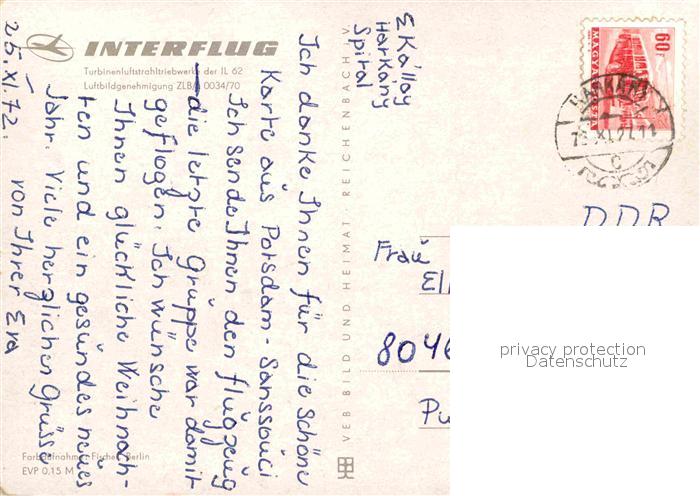 INTERFLUG
Turbinenluftstrahltriebwerke der IL 62
Luftbildgenehmigung ZLB/ 0034/70
Ich danke Ihnen für die schöne
Karte aus Potsdam-Sanssouci
Ich sende Ihnen den flugzeug
die letzte Gruppe war damit
geflogen. Ich wünsche
Ihnen glückliche Weihnach-
ten und ein gesundes neues
Jahr. Viele herzlichen Grüsse
von Ihrer Eva
25.XI.72.
Farbaufnahme: Fischer, Berlin
EVP 0,15 M
VEB BILD UND HEIMAT REICHENBACH V
E Kállay
Harkány
Spital
60f
MAGYAR POSTA
HARKÁNY
DDR
Frau
El
8046
Pu
privacy protection
Datenschutz